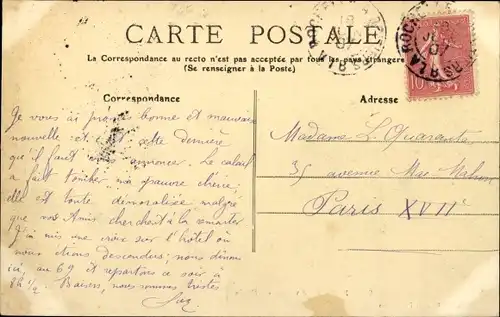 CARTE POSTALE
La Correspondance au recto n'est pas acceptée par tous les pays étrangers
(Se renseigner à la Poste)
Correspondance
Adresse
Je vous ai promis bonne et mauvaise
nouvelle et c'est cette dernière
qu'il faut annoncer. Le calcul
a fait tomber ma pauvre chérie
elle est toute démoralisée malgré
que nos Amis cherchent à la remonter
J'ai mis une croix sur l'hôtel où
nous étions descendus, nous dînons
ici, au 69 et repartons ce soir à
8h ½. Baisers, nous sommes tristes
Madame L. Quarante
35 avenue Mac Mahon
Paris XVIIe
LA ROCHELLE
10